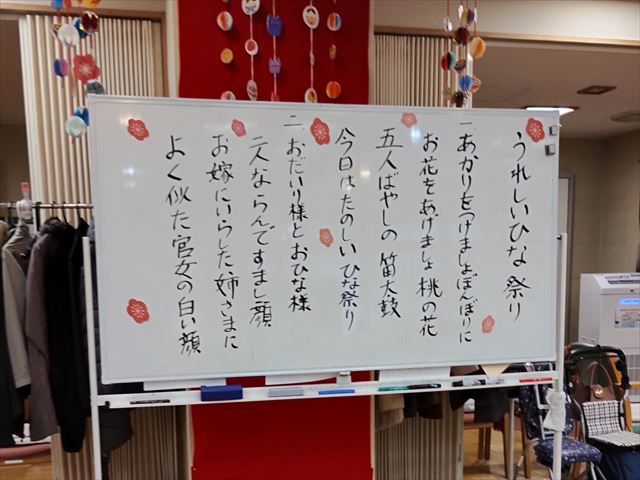 うれしいひな祭り
一 あかりをつけましょぼんぼりに
お花をあげましょ桃の花
五人ばやしの笛太鼓
今日はたのしいひな祭り
二 おだいり様とおひな様
二人ならんですまし顔
お嫁にいらした姉さまに
よく似た官女の白い顔